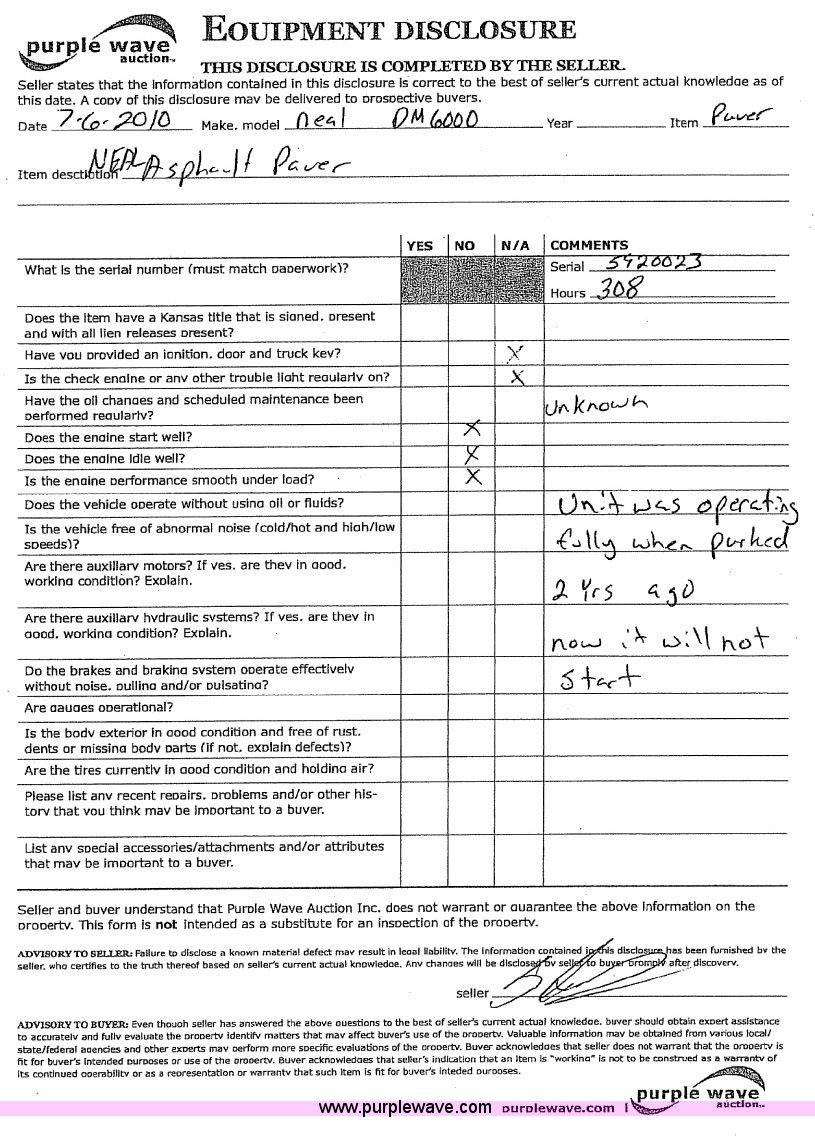 purple wave
auction™
EQUIPMENT DISCLOSURE
THIS DISCLOSURE IS COMPLETED BY THE SELLER.
Seller states that the information contained in this disclosure is correct to the best of seller's current actual knowledge as of
this date. A copy of this disclosure may be delivered to prospective buyers.
Date 7-6-2010 Make, model neal DM6000 Year Item Paver
Item description NEAL Asphault Paver
YES NO N/A COMMENTS
What is the serial number (must match paperwork)? Serial 5920023
Hours 308
Does the item have a Kansas title that is signed, present
and with all lien releases present?
Have you provided an ignition, door and truck key? X
Is the check engine or any other trouble light regularly on? X
Have the oil changes and scheduled maintenance been
performed regularly? Unknown
Does the engine start well? X
Does the engine idle well? X
Is the engine performance smooth under load? X
Does the vehicle operate without using oil or fluids? Unit was operating
Is the vehicle free of abnormal noise (cold/hot and high/low
speeds)? fully when parked
Are there auxiliary motors? If yes, are they in good,
working condition? Explain. 2 Yrs ago
Are there auxiliary hydraulic systems? If yes, are they in
good, working condition? Explain. now it will not
Do the brakes and braking system operate effectively
without noise, pulling and/or pulsating? Start
Are gauges operational?
Is the body exterior in good condition and free of rust,
dents or missing body parts (if not, explain defects)?
Are the tires currently in good condition and holding air?
Please list any recent repairs, problems and/or other his-
tory that you think may be important to a buyer.
List any special accessories/attachments and/or attributes
that may be important to a buyer.
Seller and buyer understand that Purple Wave Auction Inc. does not warrant or guarantee the above information on the
property. This form is not intended as a substitute for an inspection of the property.
ADVISORY TO SELLER: Failure to disclose a known material defect may result in legal liability. The information contained in this disclosure has been furnished by the
seller, who certifies to the truth thereof based on seller's current actual knowledge. Any changes will be disclosed by seller to buyer promply after discovery.
seller
ADVISORY TO BUYER: Even though seller has answered the above questions to the best of seller's current actual knowledge, buyer should obtain expert assistance
to accurately and fully evaluate the property identify matters that may affect buyer's use of the property. Valuable information may be obtained from various local/
state/federal agencies and other experts may perform more specific evaluations of the property. Buyer acknowledges that seller does not warrant that the property is
fit for buyer's intended purposes or use of the property. Buyer acknowledges that seller's indication that an item is "working" is not to be construed as a warranty of
its continued operability or as a representation or warranty that such item is fit for buyer's inteded purposes.
purple wave
auction™
www.purplewave.com purplewave.com |